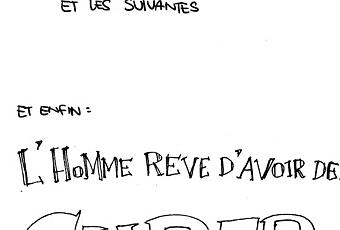 ET LES SUIVANTES
ET ENFIN :
L'HOMME REVE D'AVOIR DE